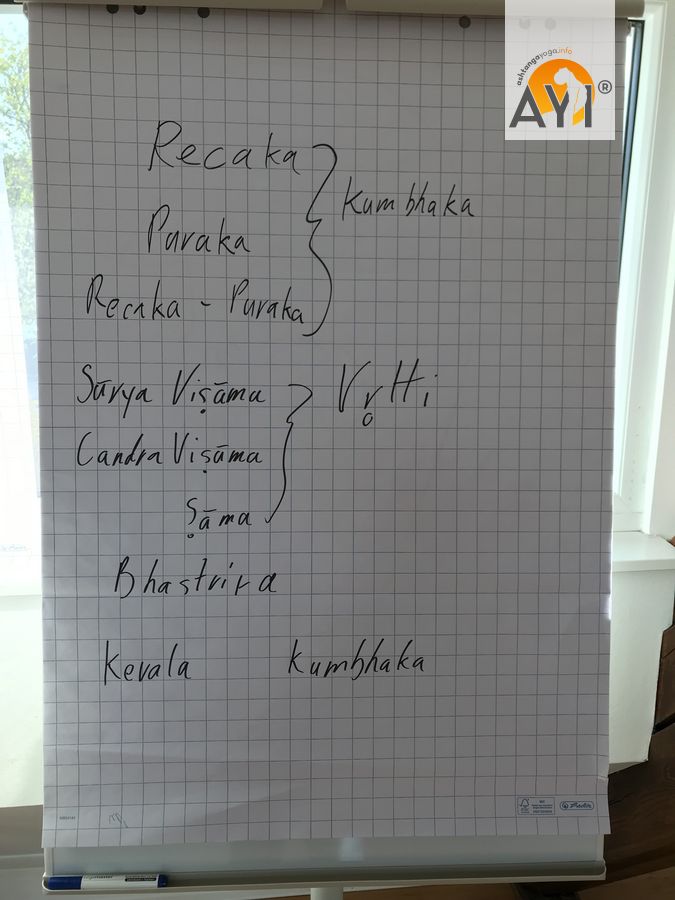 ashtangayoga.info
AYI®
Recaka
Puraka
Recaka - Puraka
Kumbhaka
Sūrya Viṣāma
Candra Viṣāma
Ṣāma
Vṛtti
Bhastrika
Kevala Kumbhaka